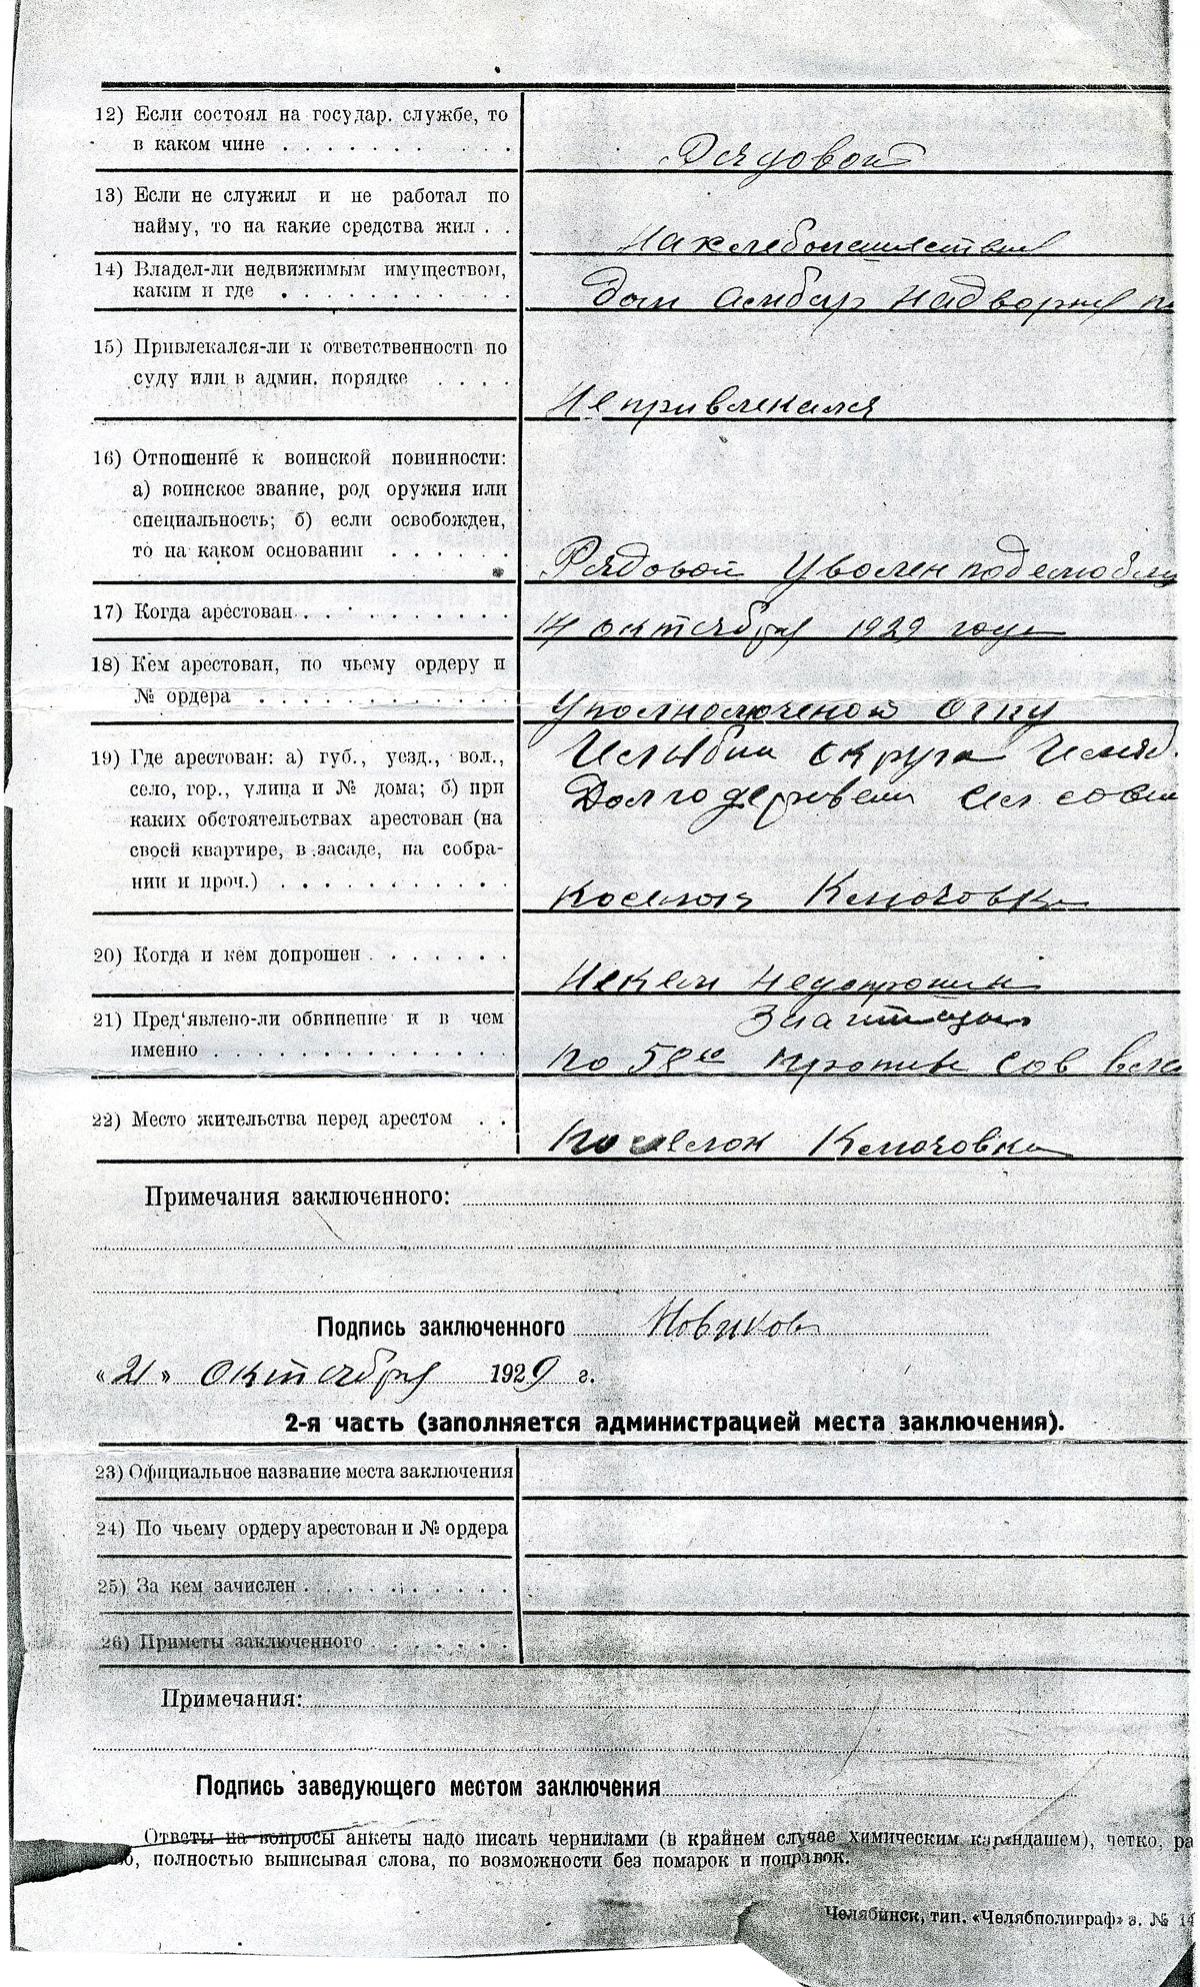 12) Если состоял на государ. службе, то
в каком чине . . . . . . . . . . Рядовой
13) Если не служил и не работал по
найму, то на какие средства жил . .
14) Владел-ли недвижимым имуществом,
каким и где . . . . . . . . . . Дом амбар надворн
15) Привлекался-ли к ответственности по
суду или в админ. порядке . . . . Не привлекался
16) Отношение к воинской повинности:
а) воинское звание, род оружия или
специальность; б) если освобожден,
то на каком основании . . . . . . Рядовой Уволен
17) Когда арестован . . . . . . . . . . 14 октября 1929 года
18) Кем арестован, по чьему ордеру и
№ ордера . . . . . . . . . . . Уполномоченой Огпу
19) Где арестован: а) губ., уезд., вол., округа
село, гор., улица и № дома; б) при
каких обстоятельствах арестован (на
своей квартире, в засаде, на собра-
нии и проч.) . . . . . . . . . . . Поселок Ключовка
20) Когда и кем допрошен . . . . . . . Некем недопрошен
21) Пред'явлено-ли обвинение и в чем
именно . . . . . . . . . . . . . . по 58 против Сов
22) Место жительства перед арестом . . Поселок Ключовка
Примечания заключенного:
Подпись заключенного Новиков
«21» октября 1929 г.
2-я часть (заполняется администрацией места заключения).
23) Официальное название места заключения
24) По чьему ордеру арестован и № ордера
25) За кем зачислен . . . . . . . . . .
26) Приметы заключенного . . . . . . .
Примечания:
Подпись заведующего местом заключения
Ответы на вопросы анкеты надо писать чернилами (в крайнем случае химическим карандашем), четко, ра
о, полностью выписывая слова, по возможности без помарок и поправок.
Челябинск, тип. «Челябполиграф» з. № 14